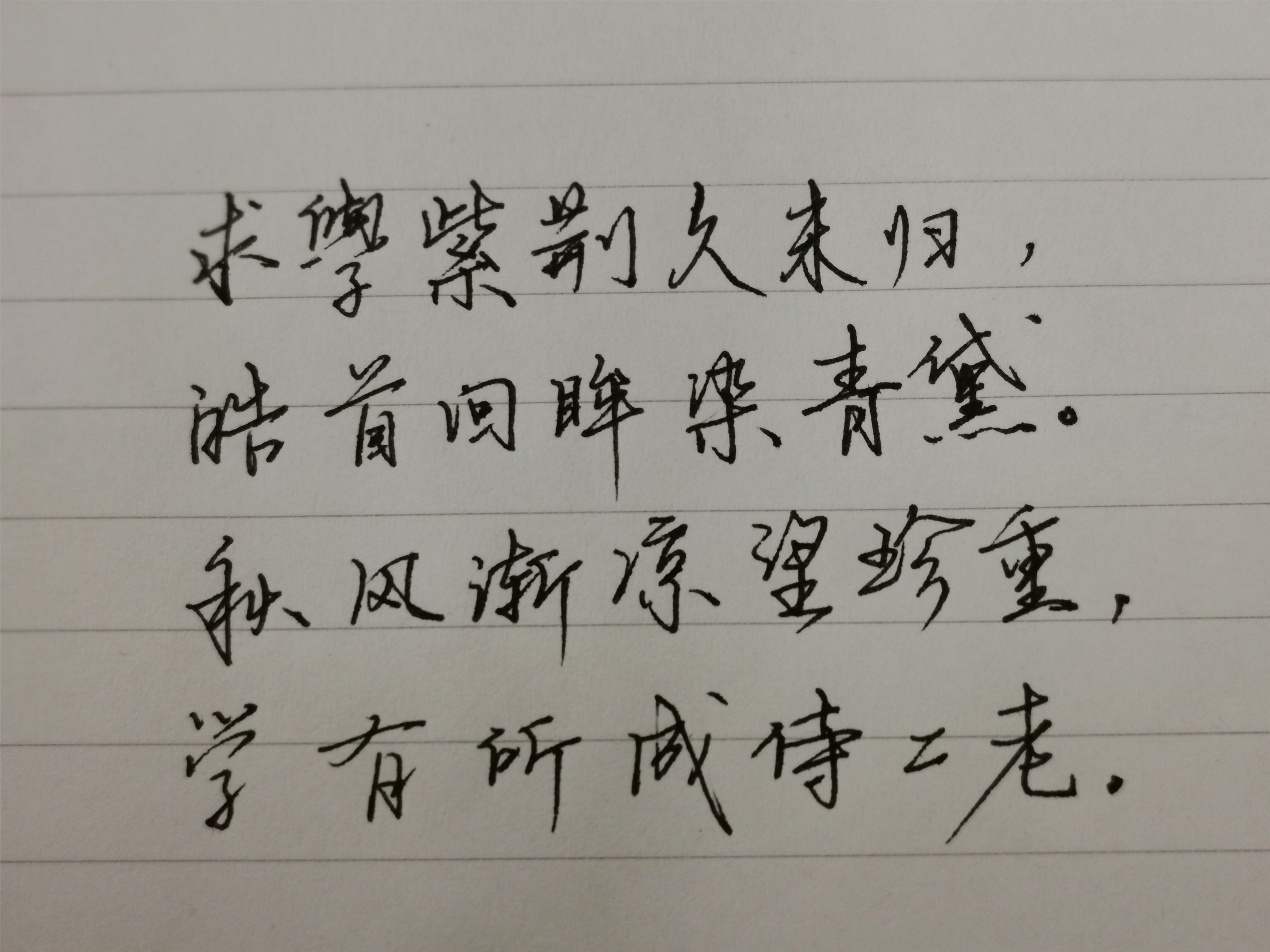 求學紫荆久未归，
皓首回眸染青黛。
秋风渐凉望珍重，
学有所成侍二老.